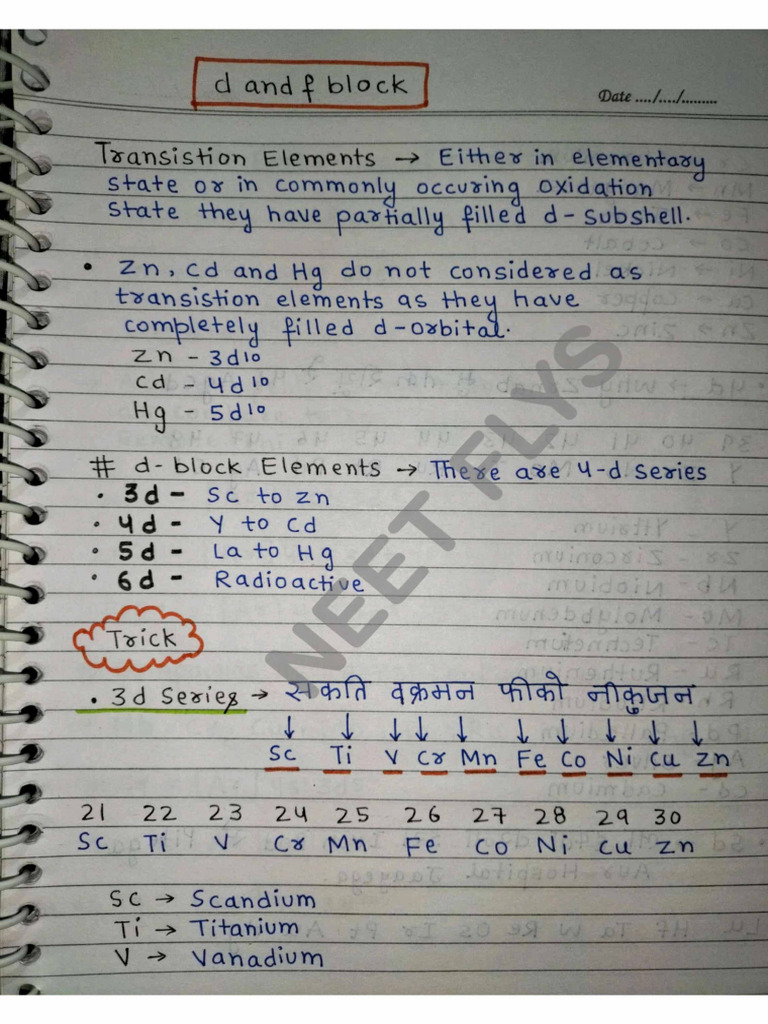 d and f block
Date ..../..../.........
Transistion Elements → Either in elementary
state or in commonly occuring oxidation
state they have partially filled d-subshell.
• Zn, Cd and Hg do not considered as
transistion elements as they have
completely filled d-orbital.
Zn - 3d10
Cd - 4d10
Hg - 5d10
# d-block Elements → There are 4-d series
• 3d - Sc to Zn
• 4d - Y to Cd
• 5d - La to Hg
• 6d - Radioactive
NEET FLYS
Trick
• 3d Series → सकति वक्रमन फीको नीकुजन
↓ ↓ ↓ ↓ ↓ ↓ ↓ ↓ ↓ ↓
Sc Ti V Cr Mn Fe Co Ni Cu Zn
21 22 23 24 25 26 27 28 29 30
Sc Ti V Cr Mn Fe Co Ni Cu Zn
Sc → Scandium
Ti → Titanium
V → Vanadium